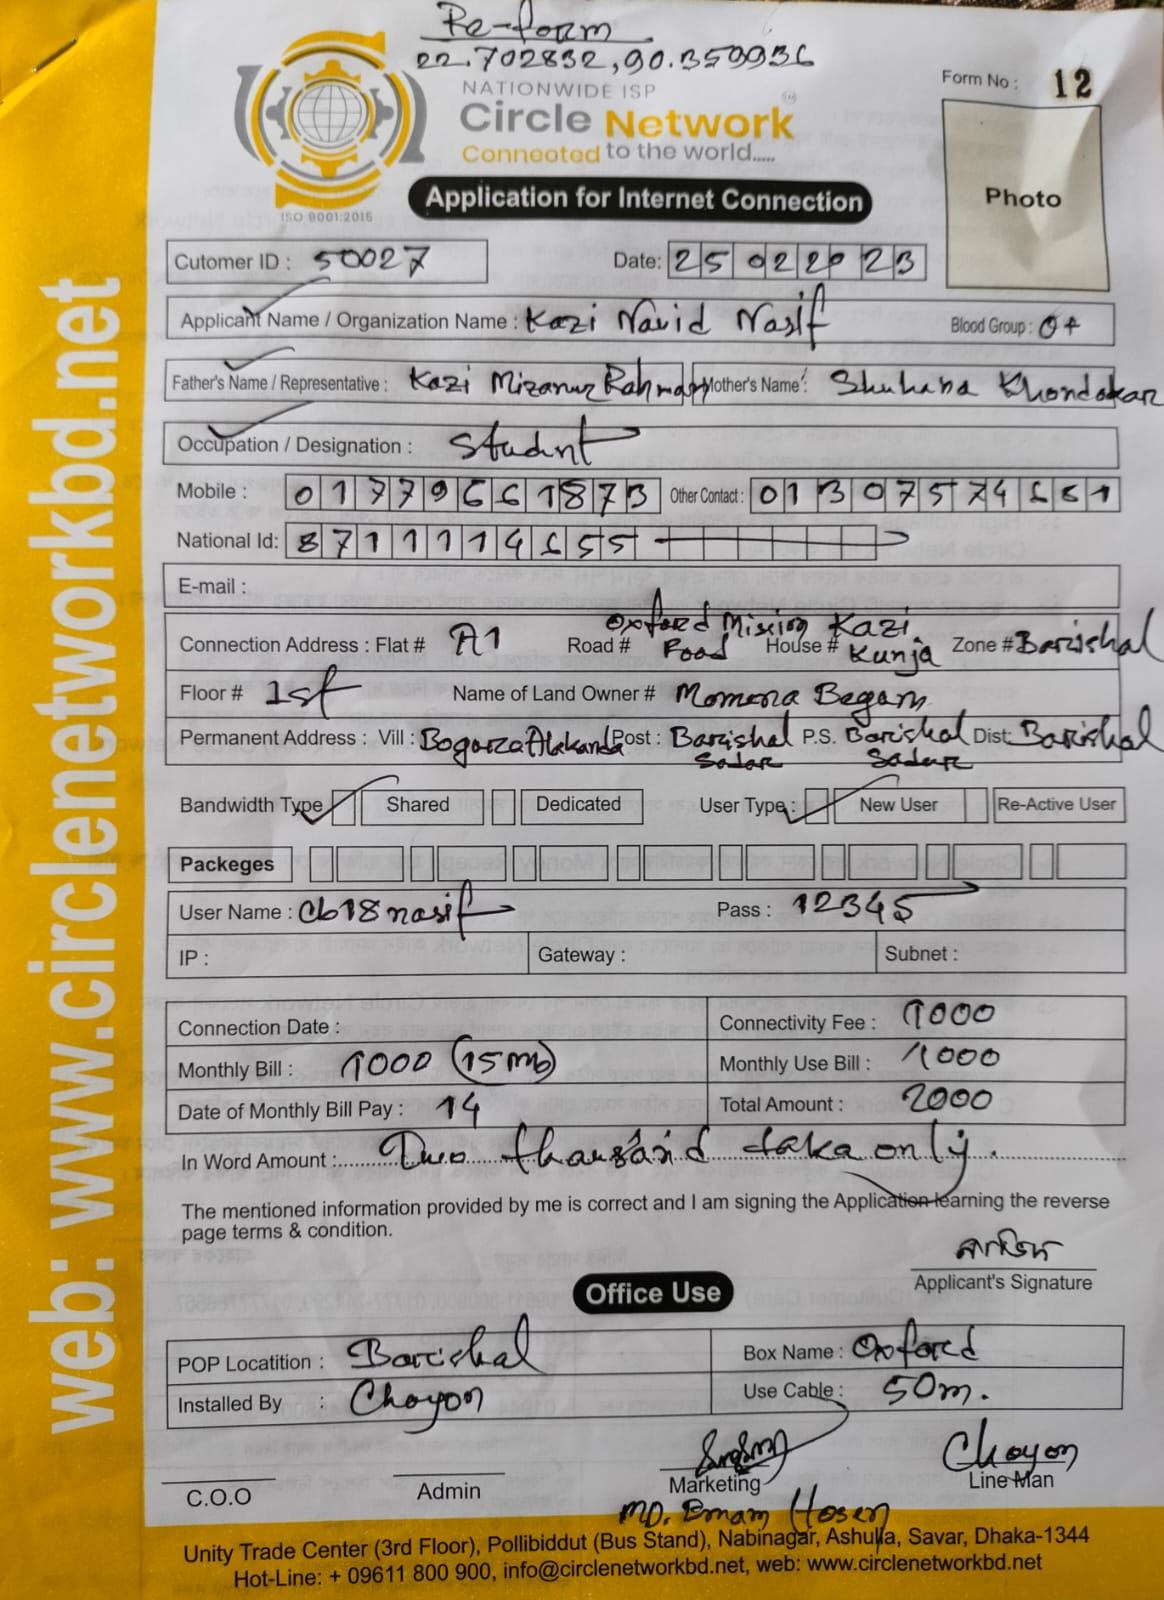 Re-form
22.702832,90.359936
NATIONWIDE ISP
Circle Network
Connected to the world.....
ISO 9001:2015
Form No : 12
Photo
Application for Internet Connection
Cutomer ID : 50027 Date: 25022023
Applicant Name / Organization Name : Kazi Navid Nasif Blood Group : O+
Father's Name / Representative : Kazi Mizanur Rahman Mother's Name : Shuhana Khondakar
Occupation / Designation : Studnt
Mobile : 01779661873 Other Contact : 01307574661
National Id: 8711114655
E-mail :
Connection Address : Flat # A1 Road # Oxford Mission Road House # Kazi Kunja Zone # Barishal
Floor # 1st Name of Land Owner # Momena Begam
Permanent Address : Vill : Bogura Alakanda Post : Barishal Sadar P.S. Barishal Sadar Dist: Barishal
Bandwidth Type Shared Dedicated User Type : New User Re-Active User
Packeges
User Name : Cb18nasif Pass : 12345
IP : Gateway : Subnet :
Connection Date : Connectivity Fee : 1000
Monthly Bill : 1000 (15mb) Monthly Use Bill : 1000
Date of Monthly Bill Pay : 14 Total Amount : 2000
In Word Amount : Two thousand taka only.
The mentioned information provided by me is correct and I am signing the Application learning the reverse
page terms & condition.
Applicant's Signature
Office Use
POP Locatition : Barishal Box Name : Oxford
Installed By : Choyon Use Cable : 50m.
C.O.O Admin Marketing Choyon Line Man
MD. Emam Hosen
Unity Trade Center (3rd Floor), Pollibiddut (Bus Stand), Nabinagar, Ashulia, Savar, Dhaka-1344
Hot-Line: + 09611 800 900, info@circlenetworkbd.net, web: www.circlenetworkbd.net
web: www.circlenetworkbd.net